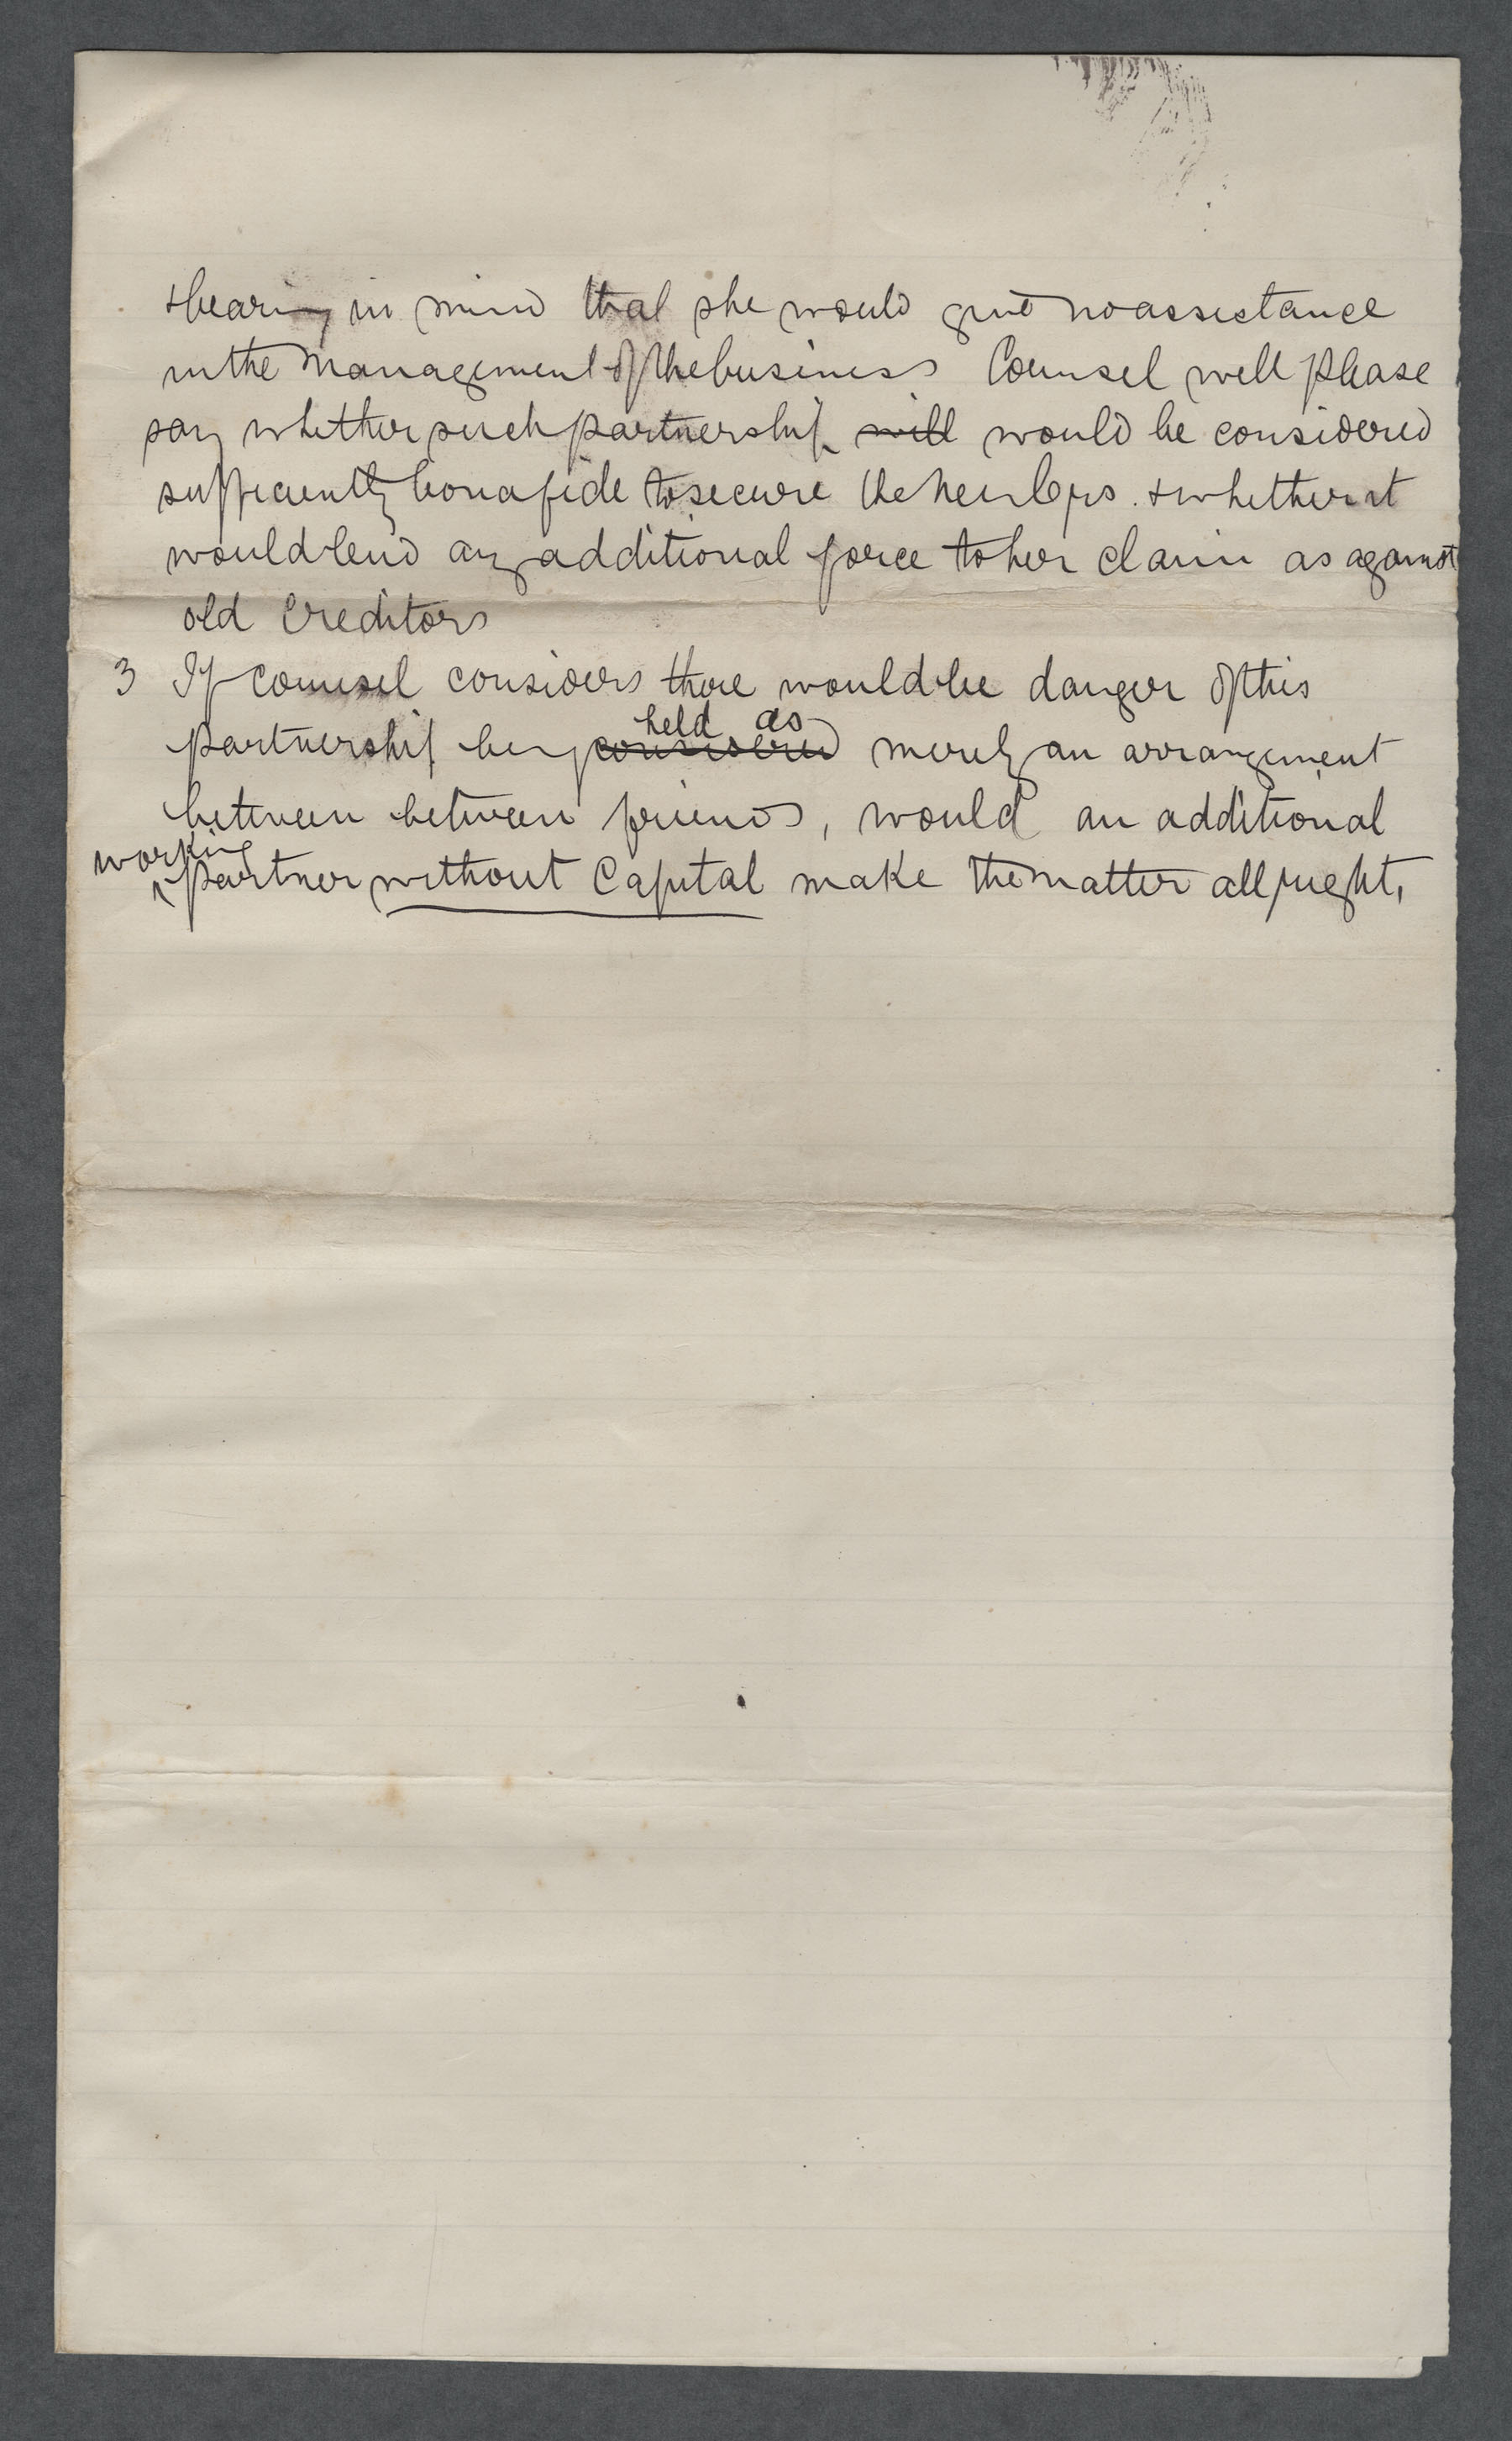 & bearing in mind that she would give no assistance
in the management of the business Counsel will please
say whether such partnership will would be considered
sufficiently bonafide to secure the new Cprs. & whether it
would lend any additional force to her claim as against
old Creditors
3 If Counsel considers there would be danger of this
held as
partnership being considered merely an arrangement
between between friends, would an additional
working
partner without Capital make the matter all right,